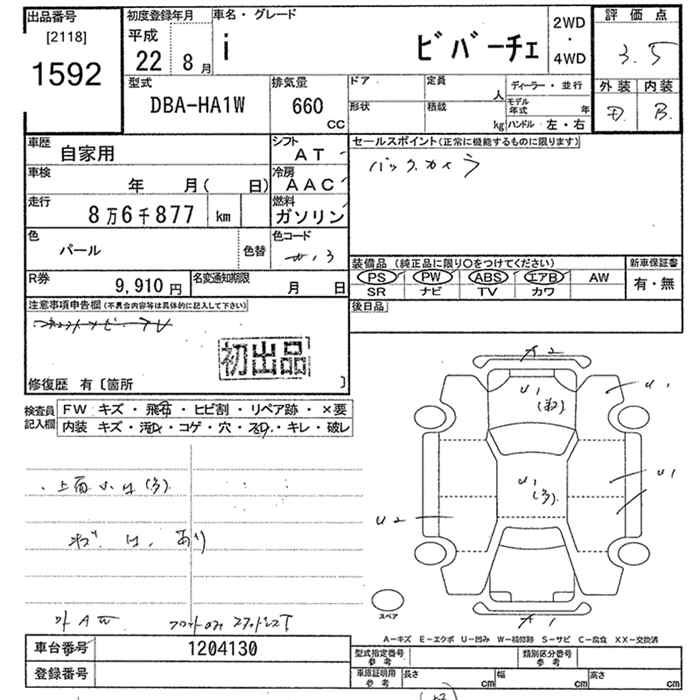 出品番号
[2118]
1592
初度登録年月
平成
22
8月
車名・グレード
i
ビバーチェ
2WD
・
4WD
評価点
3.5
外装
内装
B
型式
DBA-HA1W
排気量
660
CC
ドア
定員
人
形状
積載
kg
ディーラー・並行
モデル
年式
年
ハンドル 左・右
車歴
自家用
シフト
AT
車検
年 月( 日)
冷房
AAC
走行
8万6千877
km
燃料
ガソリン
色
パール
色替
色コード
R券
9,910 円
名変通知期限
月 日
セールスポイント(正常に機能するものに限ります)
バックカメラ
装備品 (純正品に限り○をつけてください)
PS PW ABS エアB AW
SR ナビ TV カワ
新車保証書
有・無
後日品
注意事項申告欄(不具合内容等は具体的に記入して下さい)
初出品
修復歴 有〔箇所 〕
検査員
記入欄
FW キズ・飛石・ヒビ割・リペア跡・×要
内装 キズ・汚れ・コゲ・穴・スレ・キレ・破レ
A2
U1
U1
U1
U1
U2
A1
スペア
A−キズ E−エクボ U−凹み W−補修跡 S−サビ C−腐食 XX−交換済
車台番号
1204130
登録番号
型式指定番号
参考
類別区分番号
参考
車庫証明用
参考
長さ
cm
幅
cm
高さ
cm